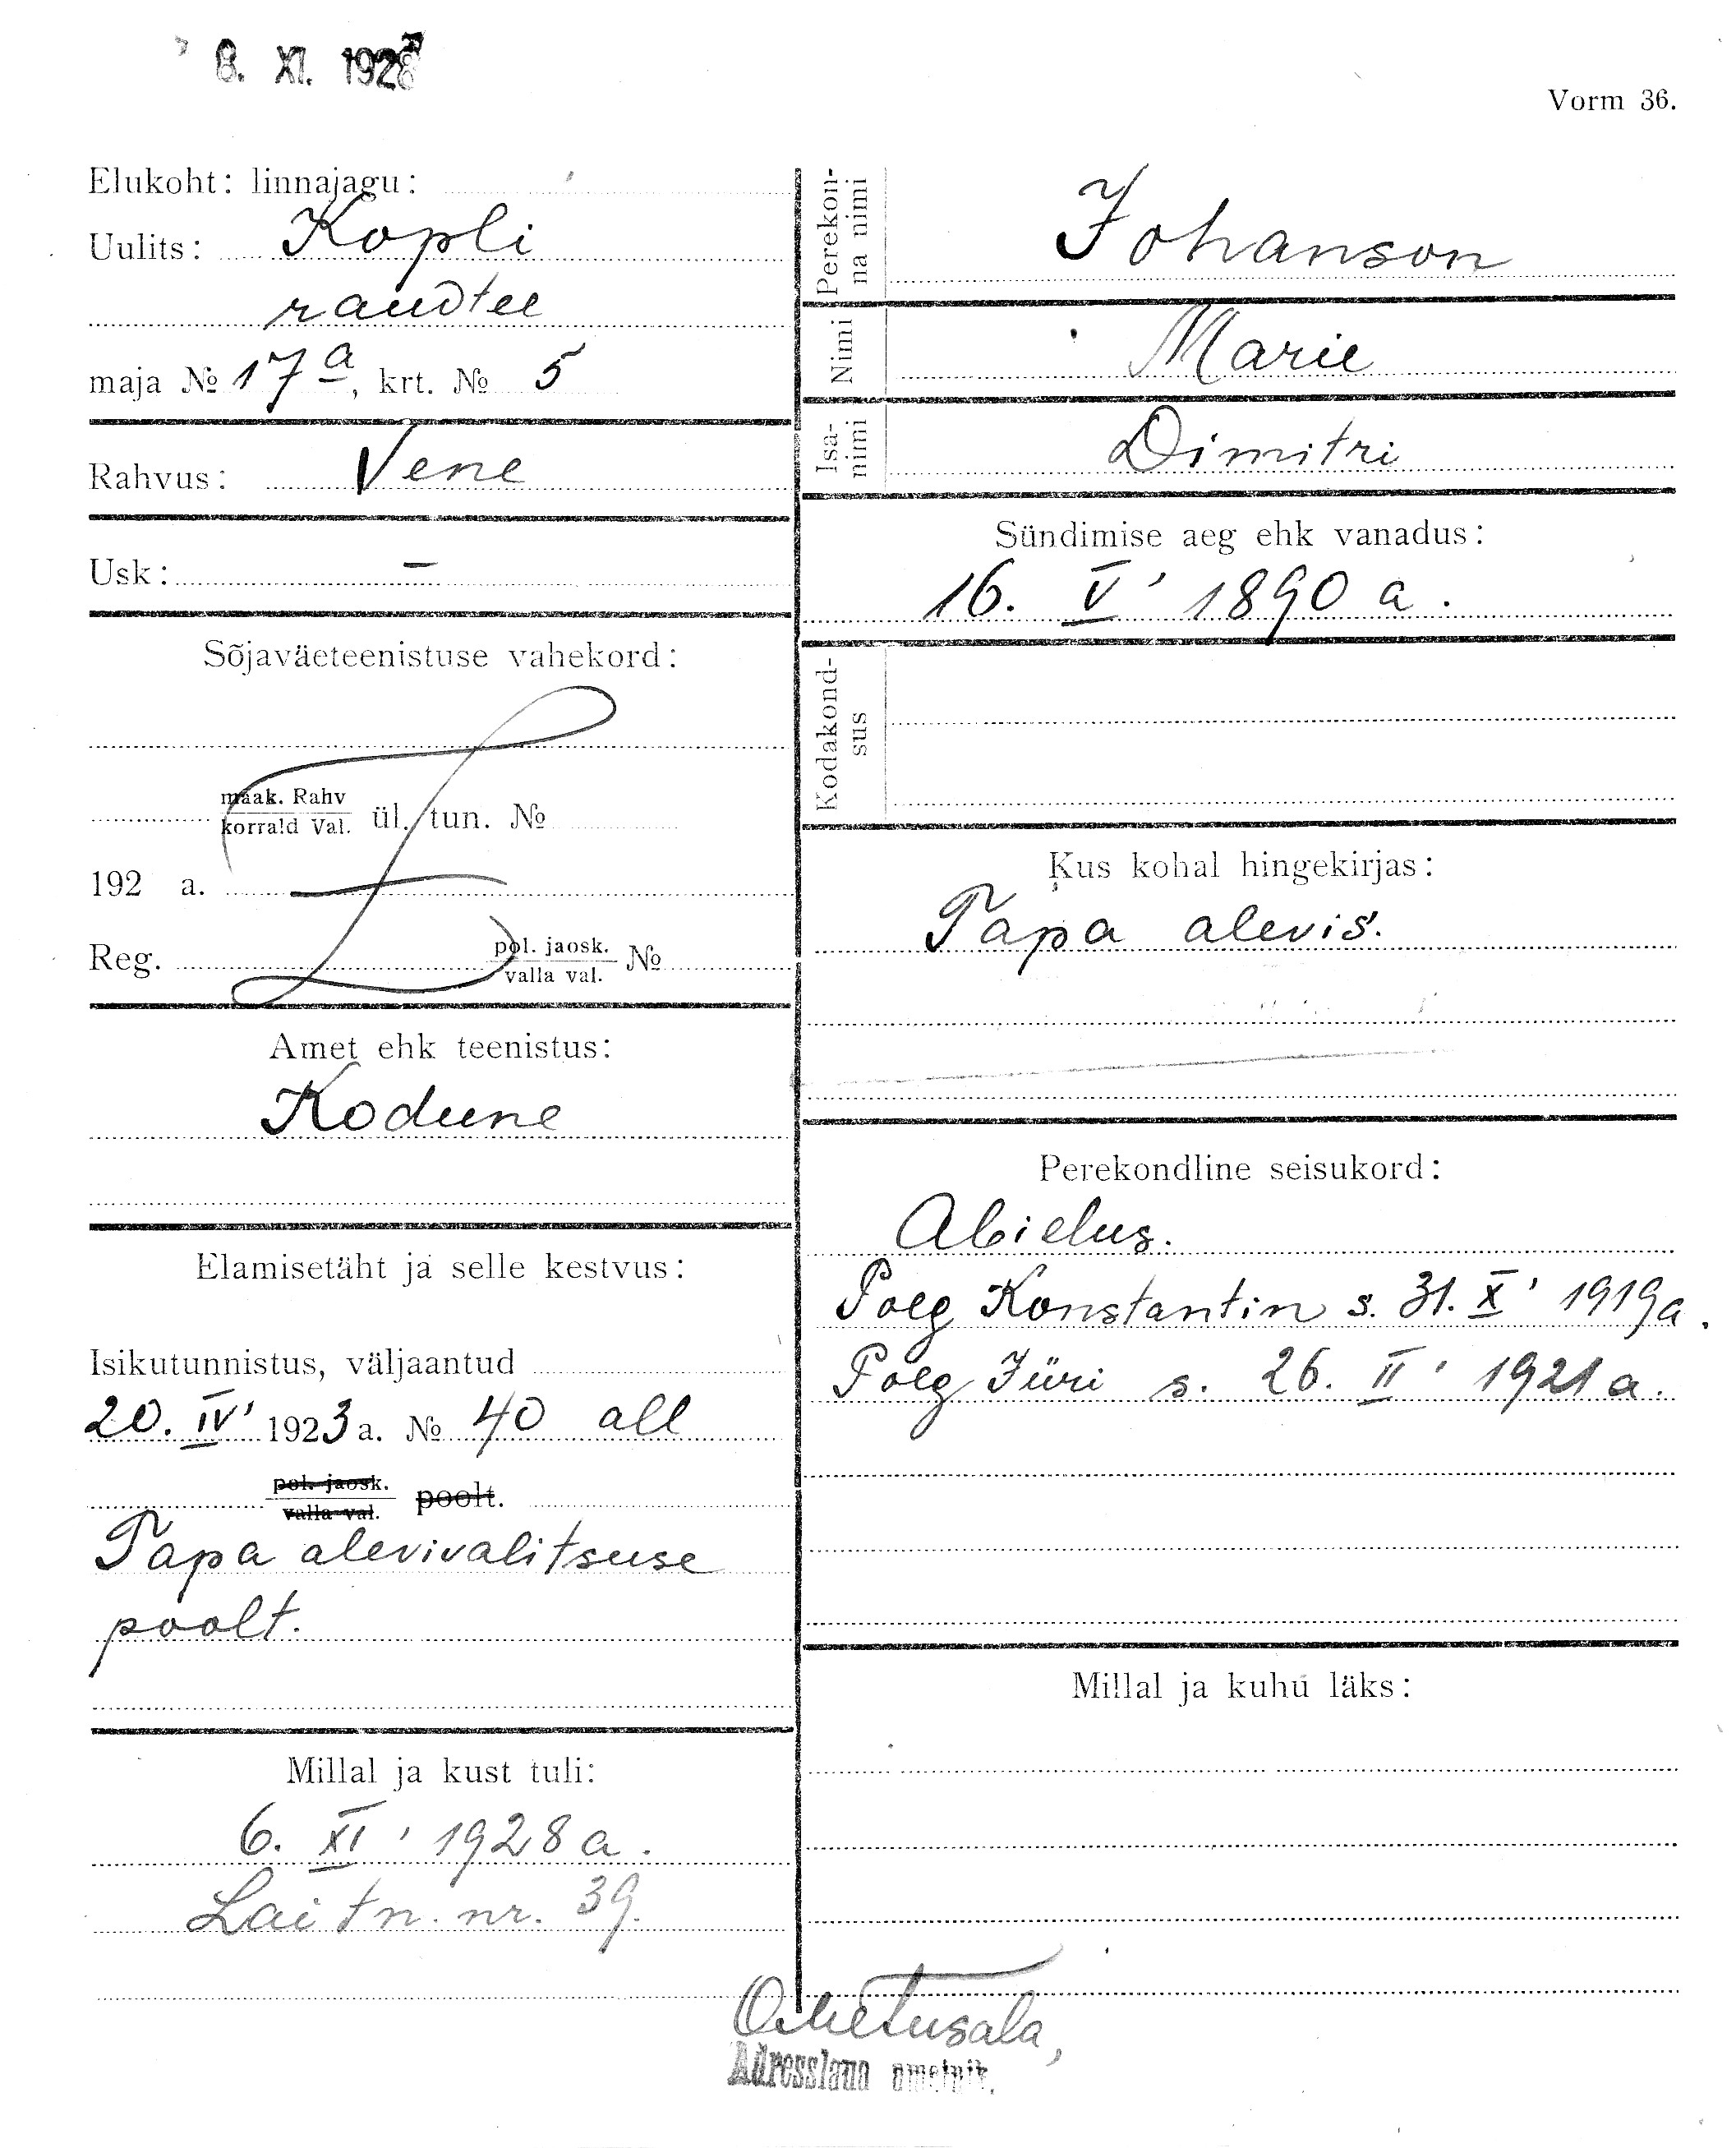 8. XI. 1928
Vorm 36.
Elukoht: linnajagu:
Uulits: Kopli
raudtee
maja № 17 a, krt. № 5
Rahvus: Vene
Usk: —
Sõjaväeteenistuse vahekord:
maak. Rahv
korrald Val. ül. tun. №
192 a.
Reg. pol. jaosk.
valla val. №
Amet ehk teenistus:
Kodune
Elamisetäht ja selle kestvus:
Isikutunnistus, väljaantud
20. IV' 1923 a. № 40 all
pol. jaosk.
valla val. poolt.
Tapa alevivalitsuse
poolt.
Millal ja kust tuli:
6. XI' 1928 a.
Lai tn. nr. 39.
Perekon-
na nimi
Johanson
Nimi
Marie
Isa-
nimi
Dimitri
Sündimise aeg ehk vanadus:
16. V' 1890 a.
Kodakond-
sus
Kus kohal hingekirjas:
Tapa alevis.
Perekondline seisukord:
Abielus.
Poeg Konstantin s. 31. X' 1919 a.
Poeg Jüri s. 26. II' 1921 a.
Millal ja kuhu läks:
Adresslaua ametnik.